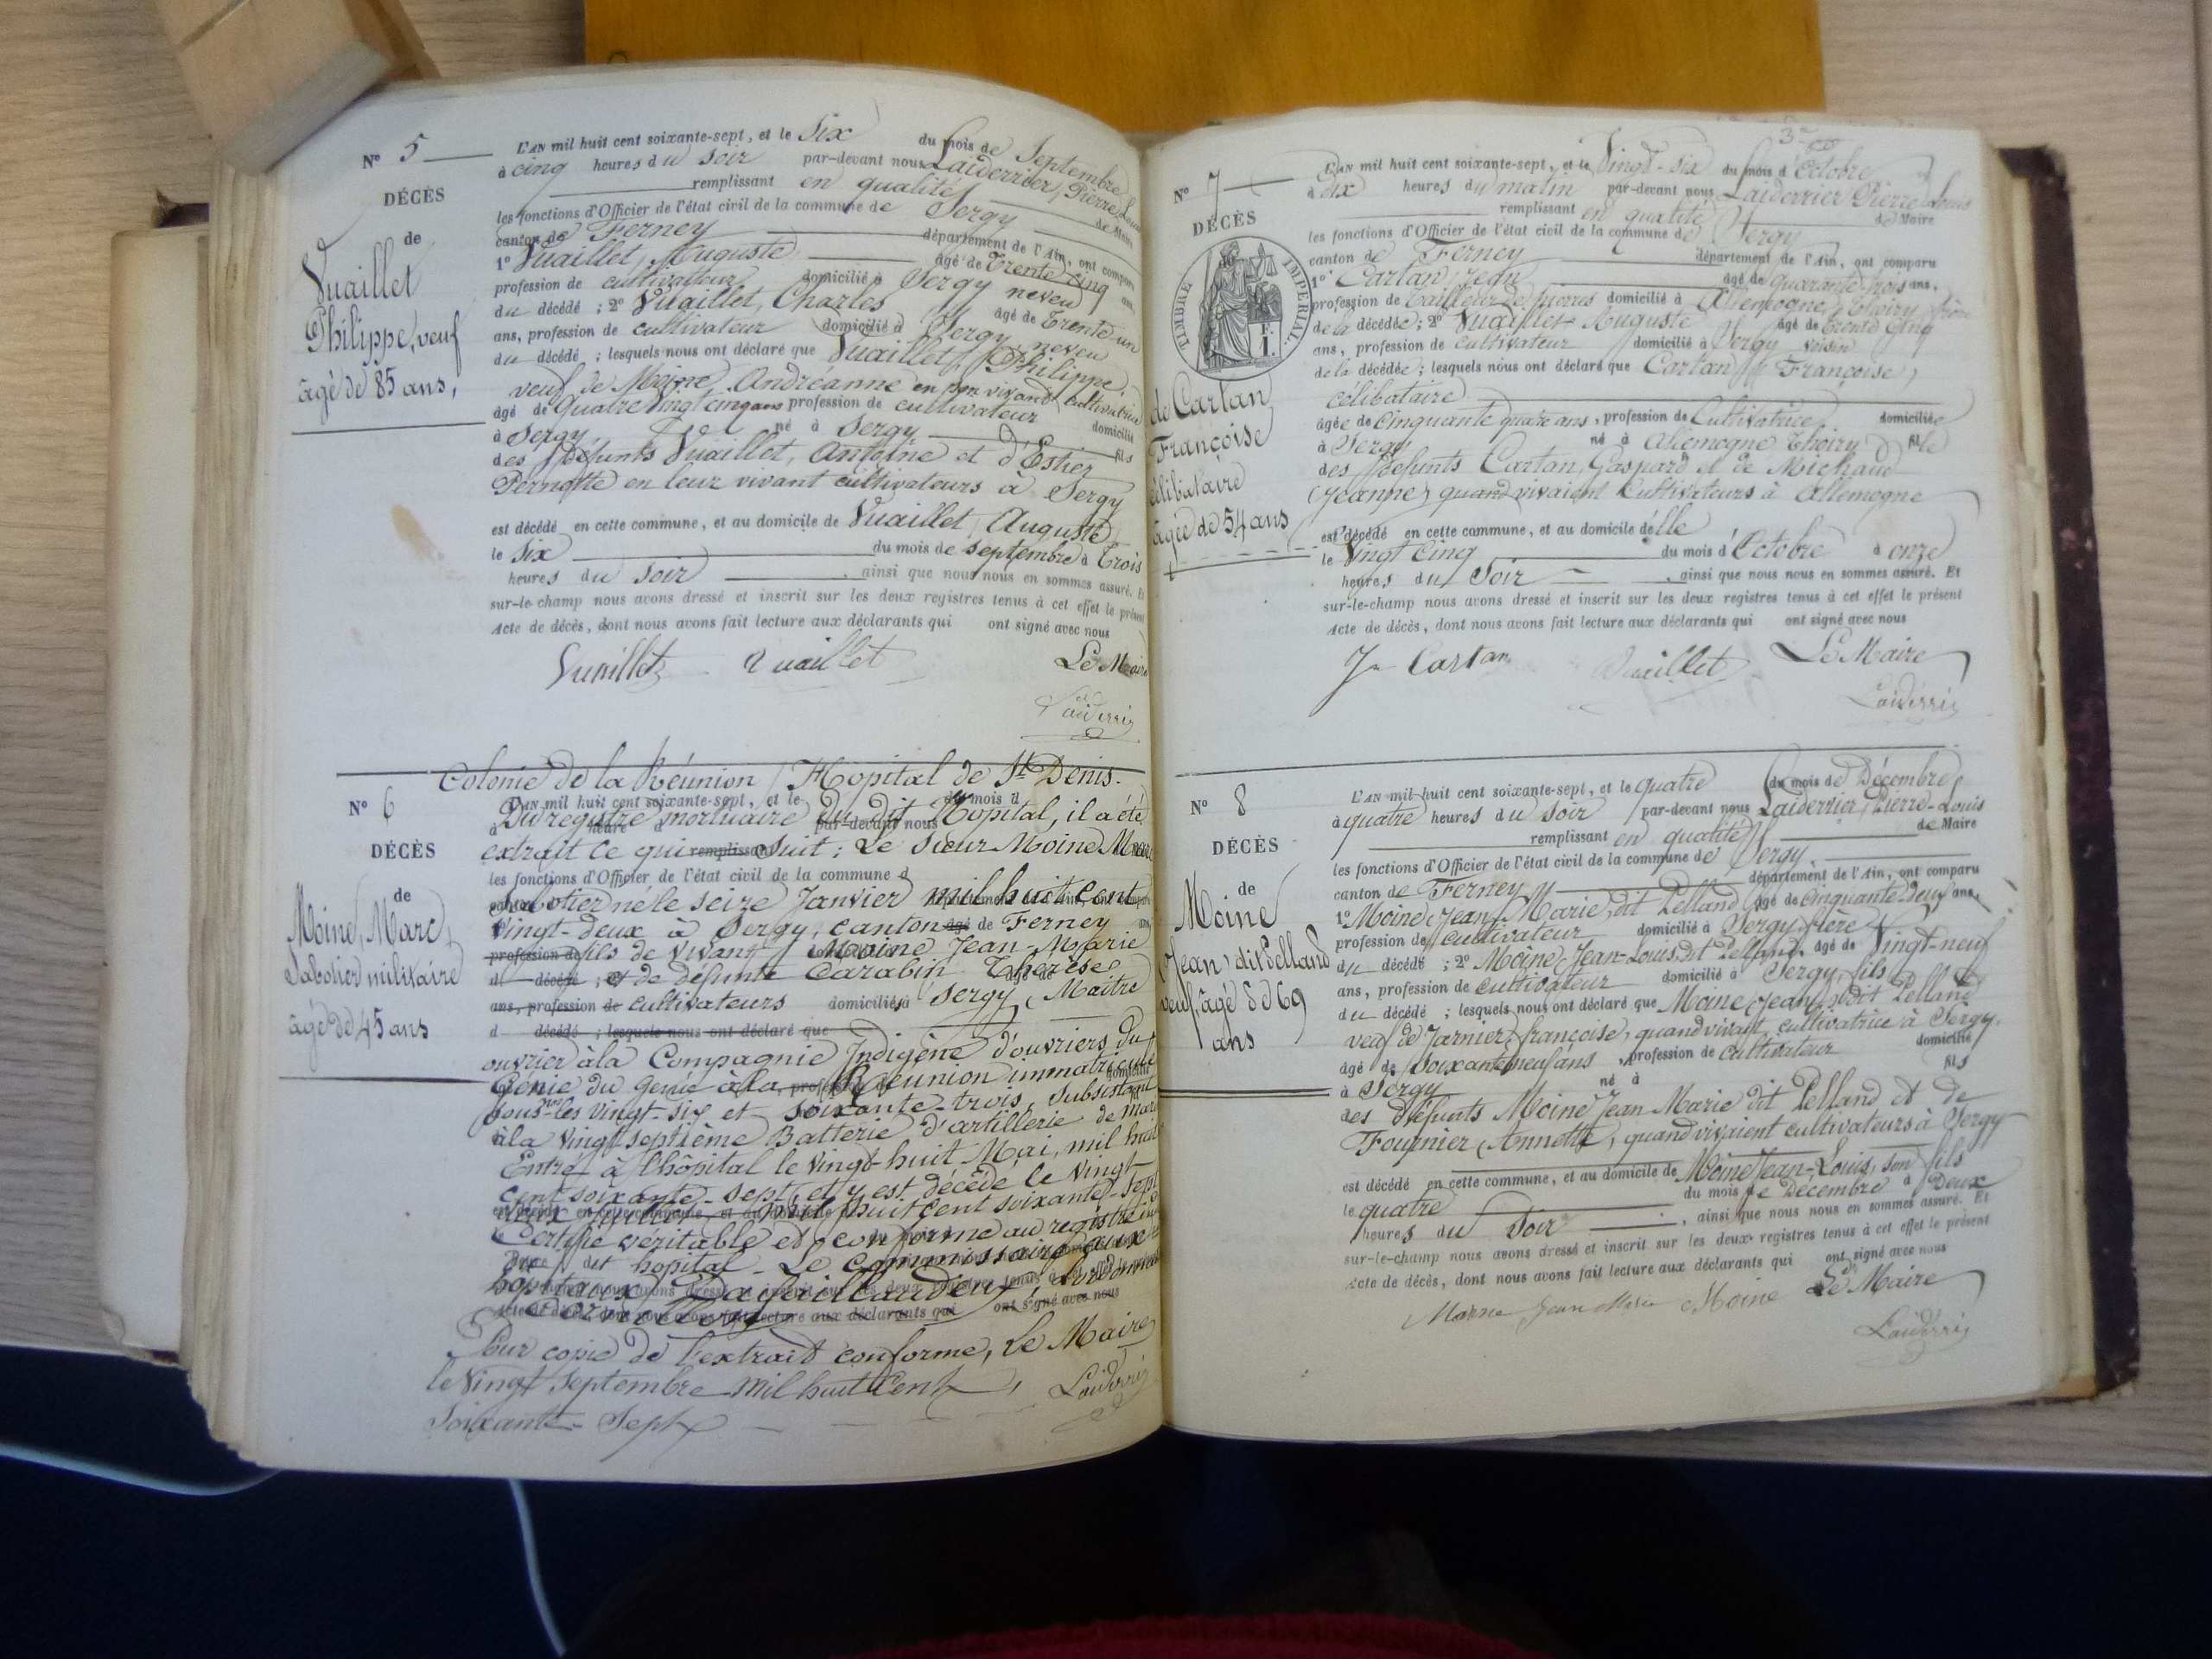 Nº 5
DÉCÈS
de
Vuaillet
Philippe, veuf
âgé de 85 ans,
L'AN mil huit cent soixante-sept, et le Six du mois de Septembre
à cinq heures du soir par-devant nous Laiderrier, Pierre Louis
remplissant en qualité de Maire
les fonctions d'Officier de l'état civil de la commune de Sergy
canton de Ferney département de l'Ain, ont comparu
1º Vuaillet, Auguste âgé de Trente cinq ans,
profession de cultivateur domicilié à Sergy neveu
du décédé ; 2º Vuaillet, Charles âgé de Trente un
ans, profession de cultivateur domicilié à Sergy, neveu
du décédé ; lesquels nous ont déclaré que Vuaillet, Philippe,
veuf de Moine, Andréanne en son vivant cultivatrice
âgé de Quatre Vingt cinq ans profession de cultivateur domicilié
à Sergy né à Sergy fils
des défunts Vuaillet, Antoine et d'Estier
Pernette en leur vivant cultivateurs à Sergy
est décédé en cette commune, et au domicile de Vuaillet, Auguste
le Six du mois de septembre à Trois
heures du Soir, ainsi que nous nous en sommes assuré. Et
sur-le-champ nous avons dressé et inscrit sur les deux registres tenus à cet effet le présent
Acte de décès, dont nous avons fait lecture aux déclarants qui ont signé avec nous
Vuaillet Vuaillet Le Maire
Laiderrier
Colonie de la Réunion / Hôpital de St Denis.
Nº 6
DÉCÈS
de
Moine, Marc,
Sabotier militaire
âgé de 45 ans
L'AN mil huit cent soixante-sept, et le du mois d
Du registre mortuaire du dit Hopital, il a été
extrait ce qui suit : Le Sieur Moine Marc
les fonctions d'Officier de l'état civil de la commune d
Sabotier né le seize Janvier mil huit cent
vingt-deux à Sergy, canton de Ferney
fils de vivant Moine Jean-Marie
et de défunte Carabin Thérèse
cultivateurs domiciliés à Sergy, Maître
d décédé ; lesquels nous ont déclaré que
ouvrier à la Compagnie Indigène d'ouvriers du
Génie du Génie à la Réunion immatriculé
sous les nos vingt-six et soixante-trois, subsistant
à la vingt septième Batterie d'artillerie de
Entré à l'hôpital le vingt-huit Mai, mil huit
cent soixante-sept, et y est décédé le Vingt
deux Juillet mil huit cent soixante-sept
Certifié véritable et conforme au registre
dit hopital. Le Commissaire aux
hopitaux
Pour copie de l'extrait conforme, Le Maire
le Vingt Septembre mil huit Cent Laiderrier
Soixante-Sept
3e
Nº 7
DÉCÈS
TIMBRE IMPÉRIAL.
de Cartan
Françoise
célibataire
âgée de 54 ans
L'AN mil huit cent soixante-sept, et le Vingt-six du mois d'Octobre
à dix heures du matin par-devant nous Laiderrier Pierre Louis
remplissant en qualité de Maire
les fonctions d'Officier de l'état civil de la commune de Sergy
canton de Ferney département de l'Ain, ont comparu
1º Cartan, Jean âgé de quarante trois ans,
profession de Tailleur de pierres domicilié à Allemogne, Thoiry frère
de la décédée ; 2º Vuaillet Auguste âgé de Trente Cinq
ans, profession de Cultivateur domicilié à Sergy voisin
de la décédée ; lesquels nous ont déclaré que Cartan, Françoise,
célibataire
âgée de Cinquante quatre ans, profession de Cultivatrice domiciliée
à Sergy né à Allemogne Thoiry fille
des défunts Cartan, Gaspard et de Michaud
(Jeanne) quand vivaient Cultivateurs à Allemogne
est décédé en cette commune, et au domicile d'elle
le Vingt Cinq du mois d'Octobre à onze
heures du Soir, ainsi que nous nous en sommes assuré. Et
sur-le-champ nous avons dressé et inscrit sur les deux registres tenus à cet effet le présent
Acte de décès, dont nous avons fait lecture aux déclarants qui ont signé avec nous
Jn Cartan Vuaillet Le Maire
Laiderrier
Nº 8
DÉCÈS
de
Moine
(Jean) dit Pelland
veuf, âgé de 69
ans
L'AN mil huit cent soixante-sept, et le quatre du mois de Décembre
à quatre heures du soir par-devant nous Laiderrier, Pierre-Louis
remplissant en qualité de Maire
les fonctions d'Officier de l'état civil de la commune de Sergy
canton de Ferney département de l'Ain, ont comparu
1º Moine Jean Marie, dit Pelland âgé de Cinquante-deux ans,
profession de cultivateur domicilié à Sergy, frère
du décédé ; 2º Moine, Jean-Louis dit Pelland. âgé de Vingt-neuf
ans, profession de Cultivateur domicilié à Sergy, fils
du décédé ; lesquels nous ont déclaré que Moine (Jean) dit Pelland
veuf de Jarnier, françoise, quand vivait cultivatrice à Sergy,
âgé de Soixante neuf ans, profession de Cultivateur domicilié
à Sergy né à fils
des défunts Moine Jean Marie dit Pelland et de
Fournier (Annette), quand vivaient cultivateurs à Sergy
est décédé en cette commune, et au domicile de Moine Jean-Louis, son fils
le quatre du mois de Décembre à Deux
heures du Soir, ainsi que nous nous en sommes assuré. Et
sur-le-champ nous avons dressé et inscrit sur les deux registres tenus à cet effet le présent
Acte de décès, dont nous avons fait lecture aux déclarants qui ont signé avec nous
Moine Jean Marie Moine Le Maire
Laiderrier